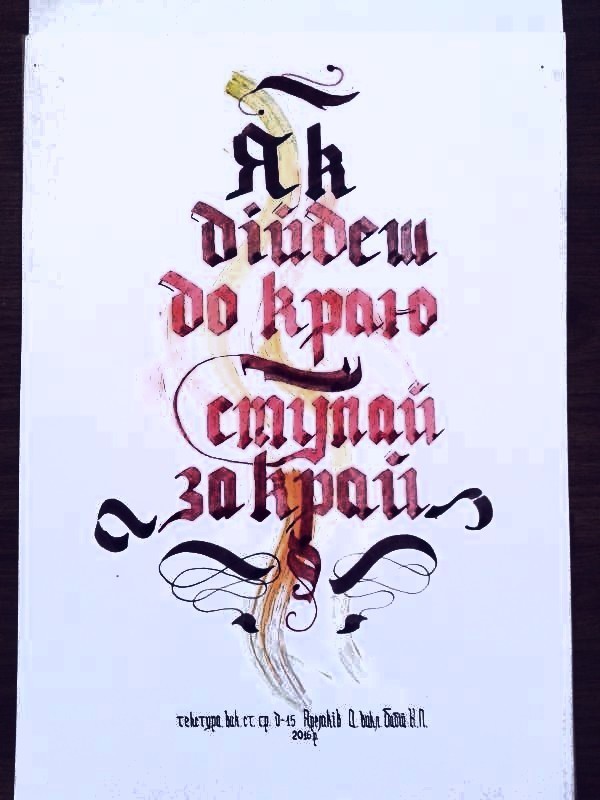 Як
дійдеш
до краю
ступай
за край
текстура вик. ст. гр. Д-15 Яремків О. викл. Бабій Н.П.
2016р